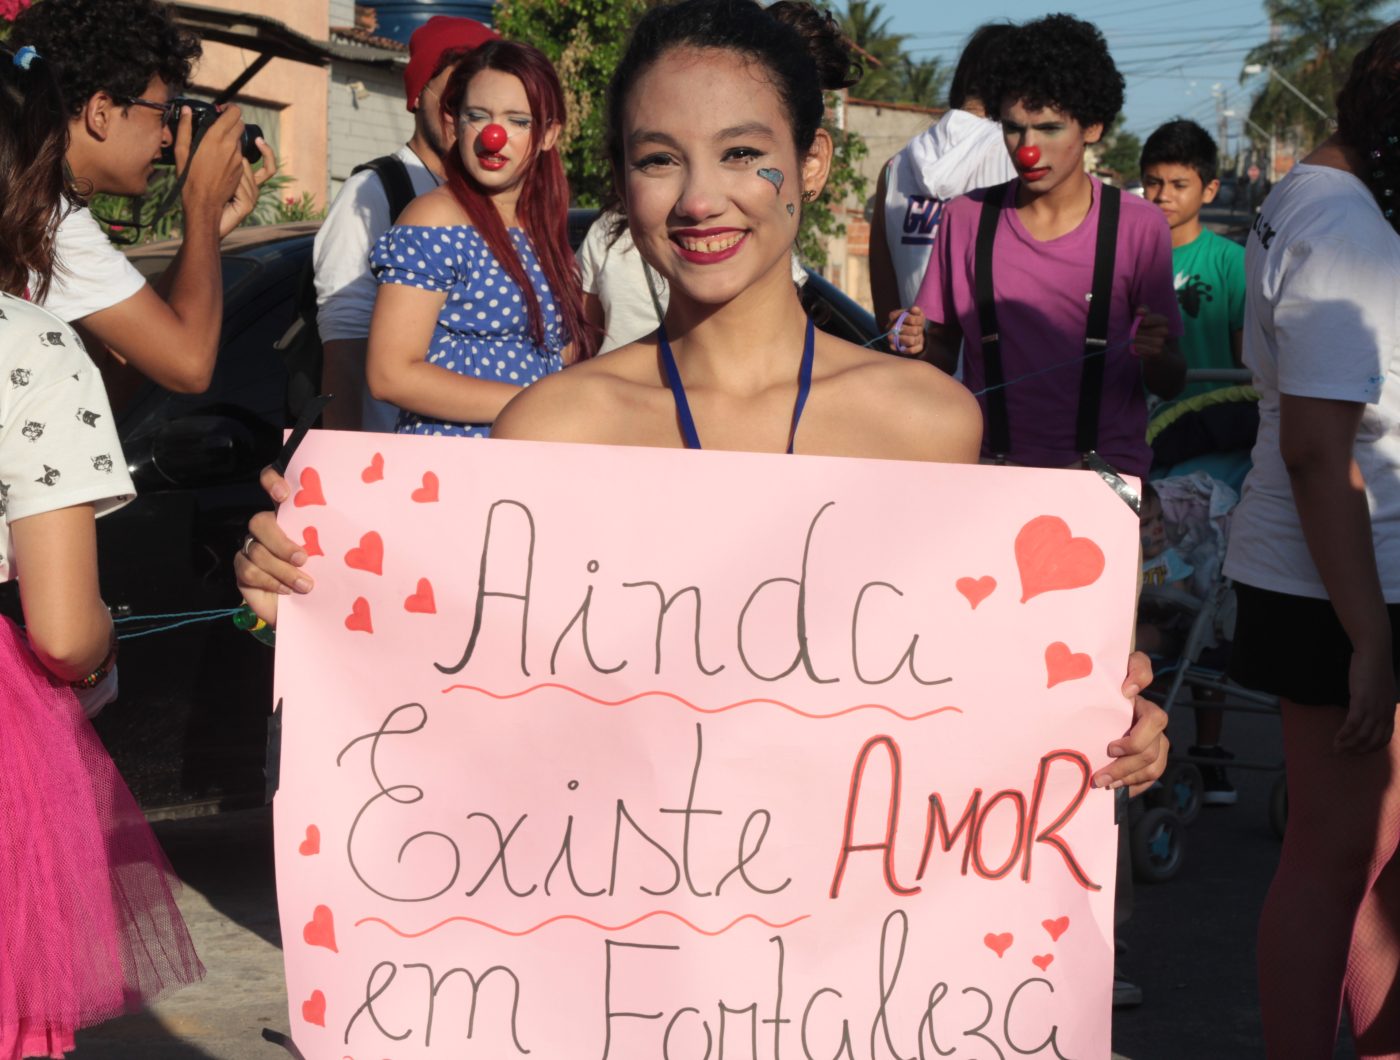 Ainda
Existe AMOR
em Fortaleza